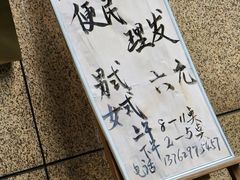 便民理发
男式 六元
女式
上午 8-11点
下午 2-5点
电话